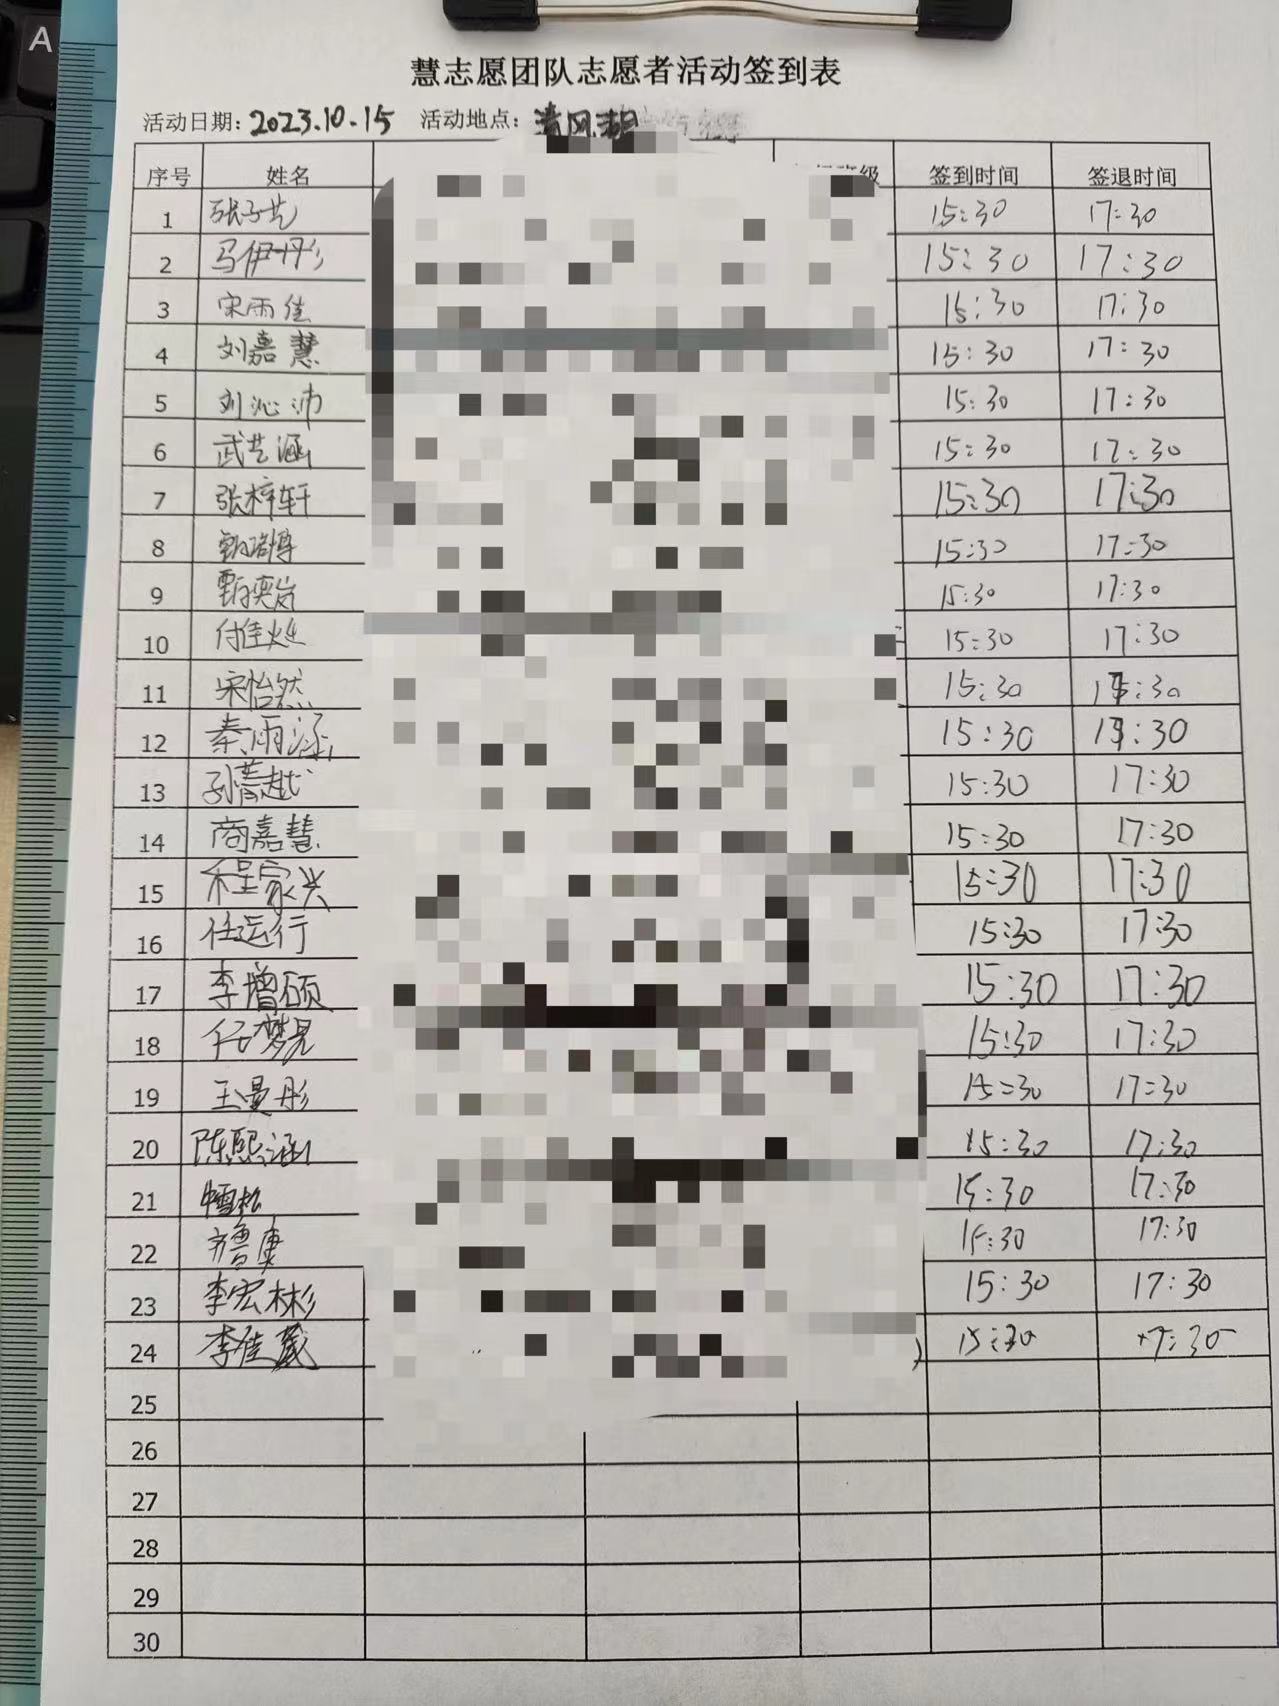 A
慧志愿团队志愿者活动签到表
活动日期: 2023.10.15 活动地点: 清风湖
序号 姓名 班级 签到时间 签退时间
1 张子艺 15:30 17:30
2 马伊彤 15:30 17:30
3 宋雨佳 15:30 17:30
4 刘嘉慧 15:30 17:30
5 刘沁沛 15:30 17:30
6 武艺涵 15:30 17:30
7 张梓轩 15:30 17:30
8 15:30 17:30
9 甄奕岚 15:30 17:30
10 15:30 17:30
11 宋怡然 15:30 17:30
12 秦雨涵 15:30 17:30
13 15:30 17:30
14 商嘉慧 15:30 17:30
15 程家兴 15:30 17:30
16 任运行 15:30 17:30
17 李增硕 15:30 17:30
18 15:30 17:30
19 王曼彤 15:30 17:30
20 陈熙涵 15:30 17:30
21 15:30 17:30
22 齐鲁康 15:30 17:30
23 李宏彬 15:30 17:30
24 李佳葳 15:30 17:30
25
26
27
28
29
30